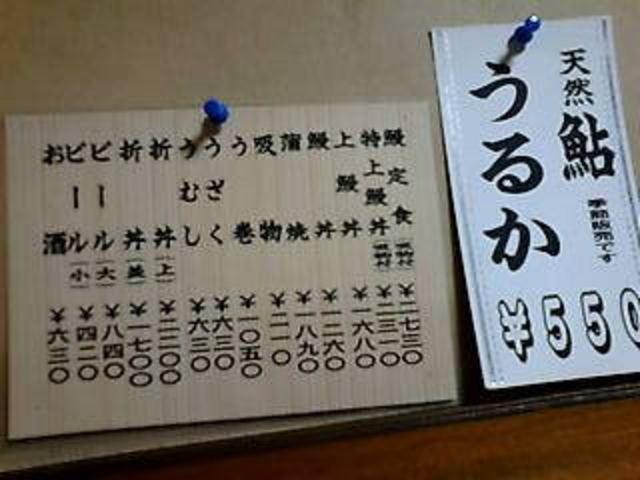 天然鮎
季節販売です
うるか
¥550
鰻定食 ¥二七三〇
特上鰻丼 ¥二三一〇
上鰻丼 ¥一六八〇
鰻丼 ¥一二六〇
蒲焼 ¥一八九〇
吸物 ¥二一〇
う巻 ¥一〇五〇
うざく ¥六三〇
うむし ¥六三〇
折丼(上)
折丼(並) ¥一七〇〇
ビール(大) ¥八四〇
ビール(小) ¥四二〇
お酒 ¥六三〇